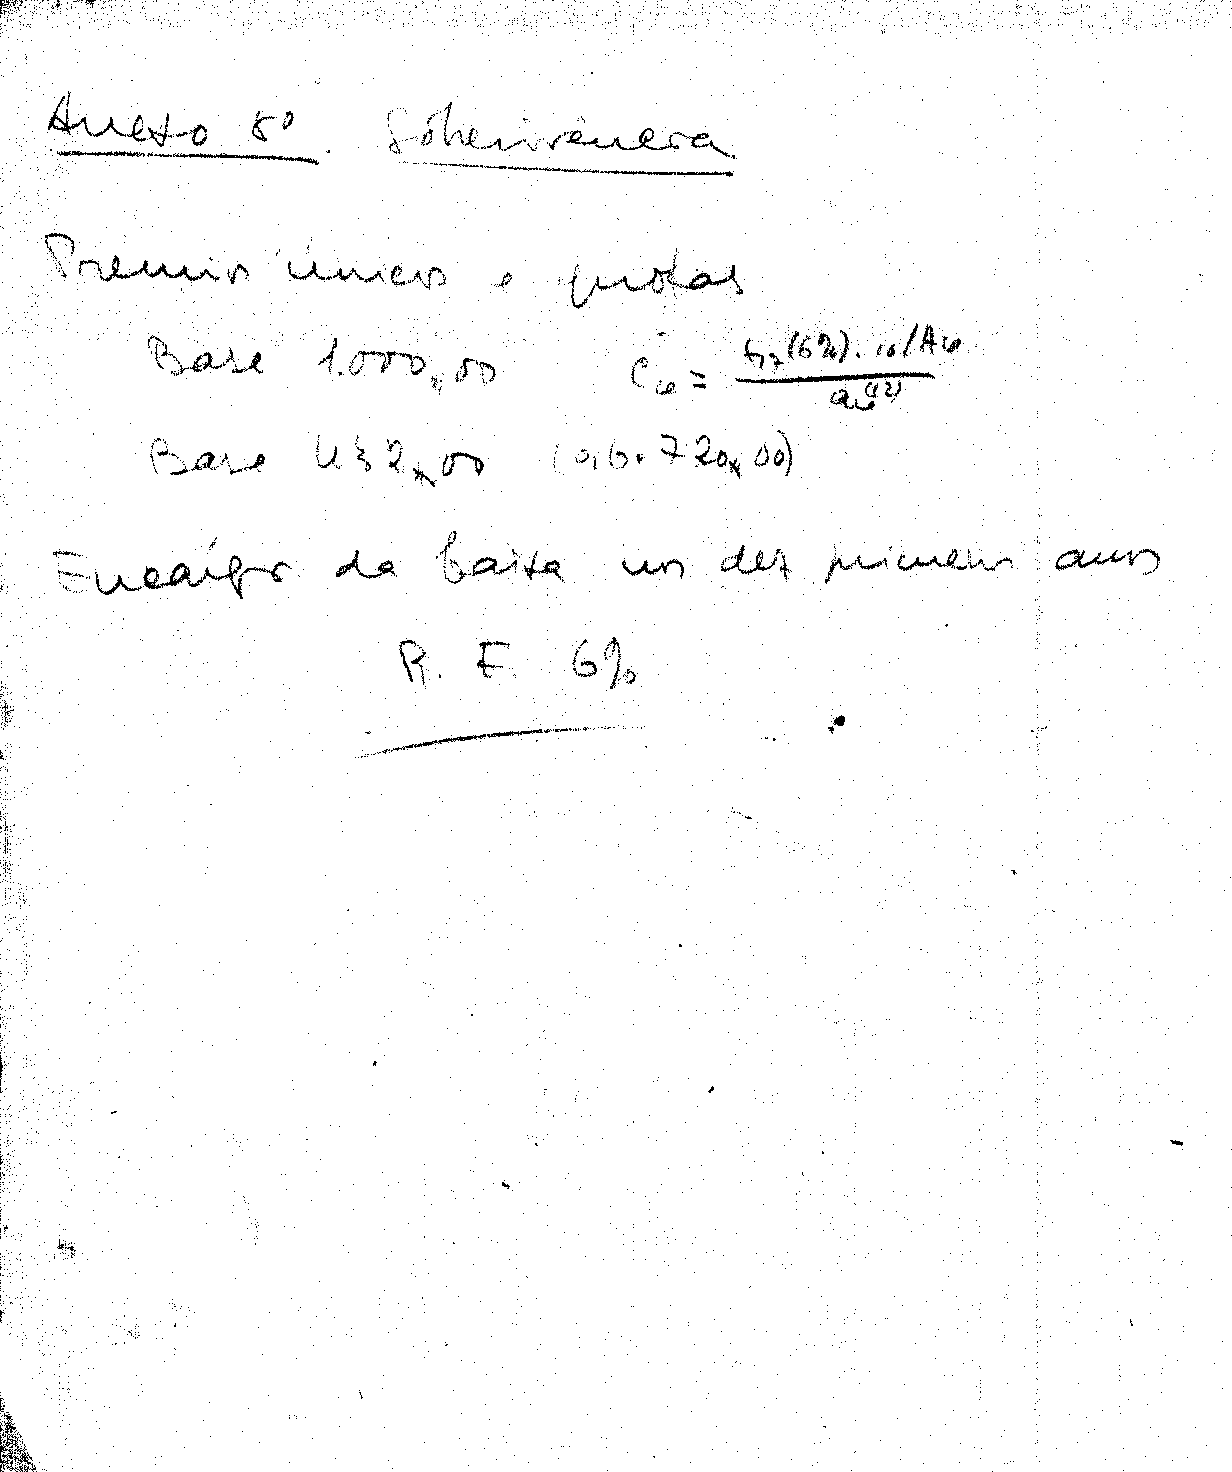 Anexo 8º. Sobrevivência
Premios únicos e quotas
Base 1.000,00 C =
Base 432,00 (0,6. 720,00)
Encargos da Caixa nos dez primeiros anos
R. F. 6%